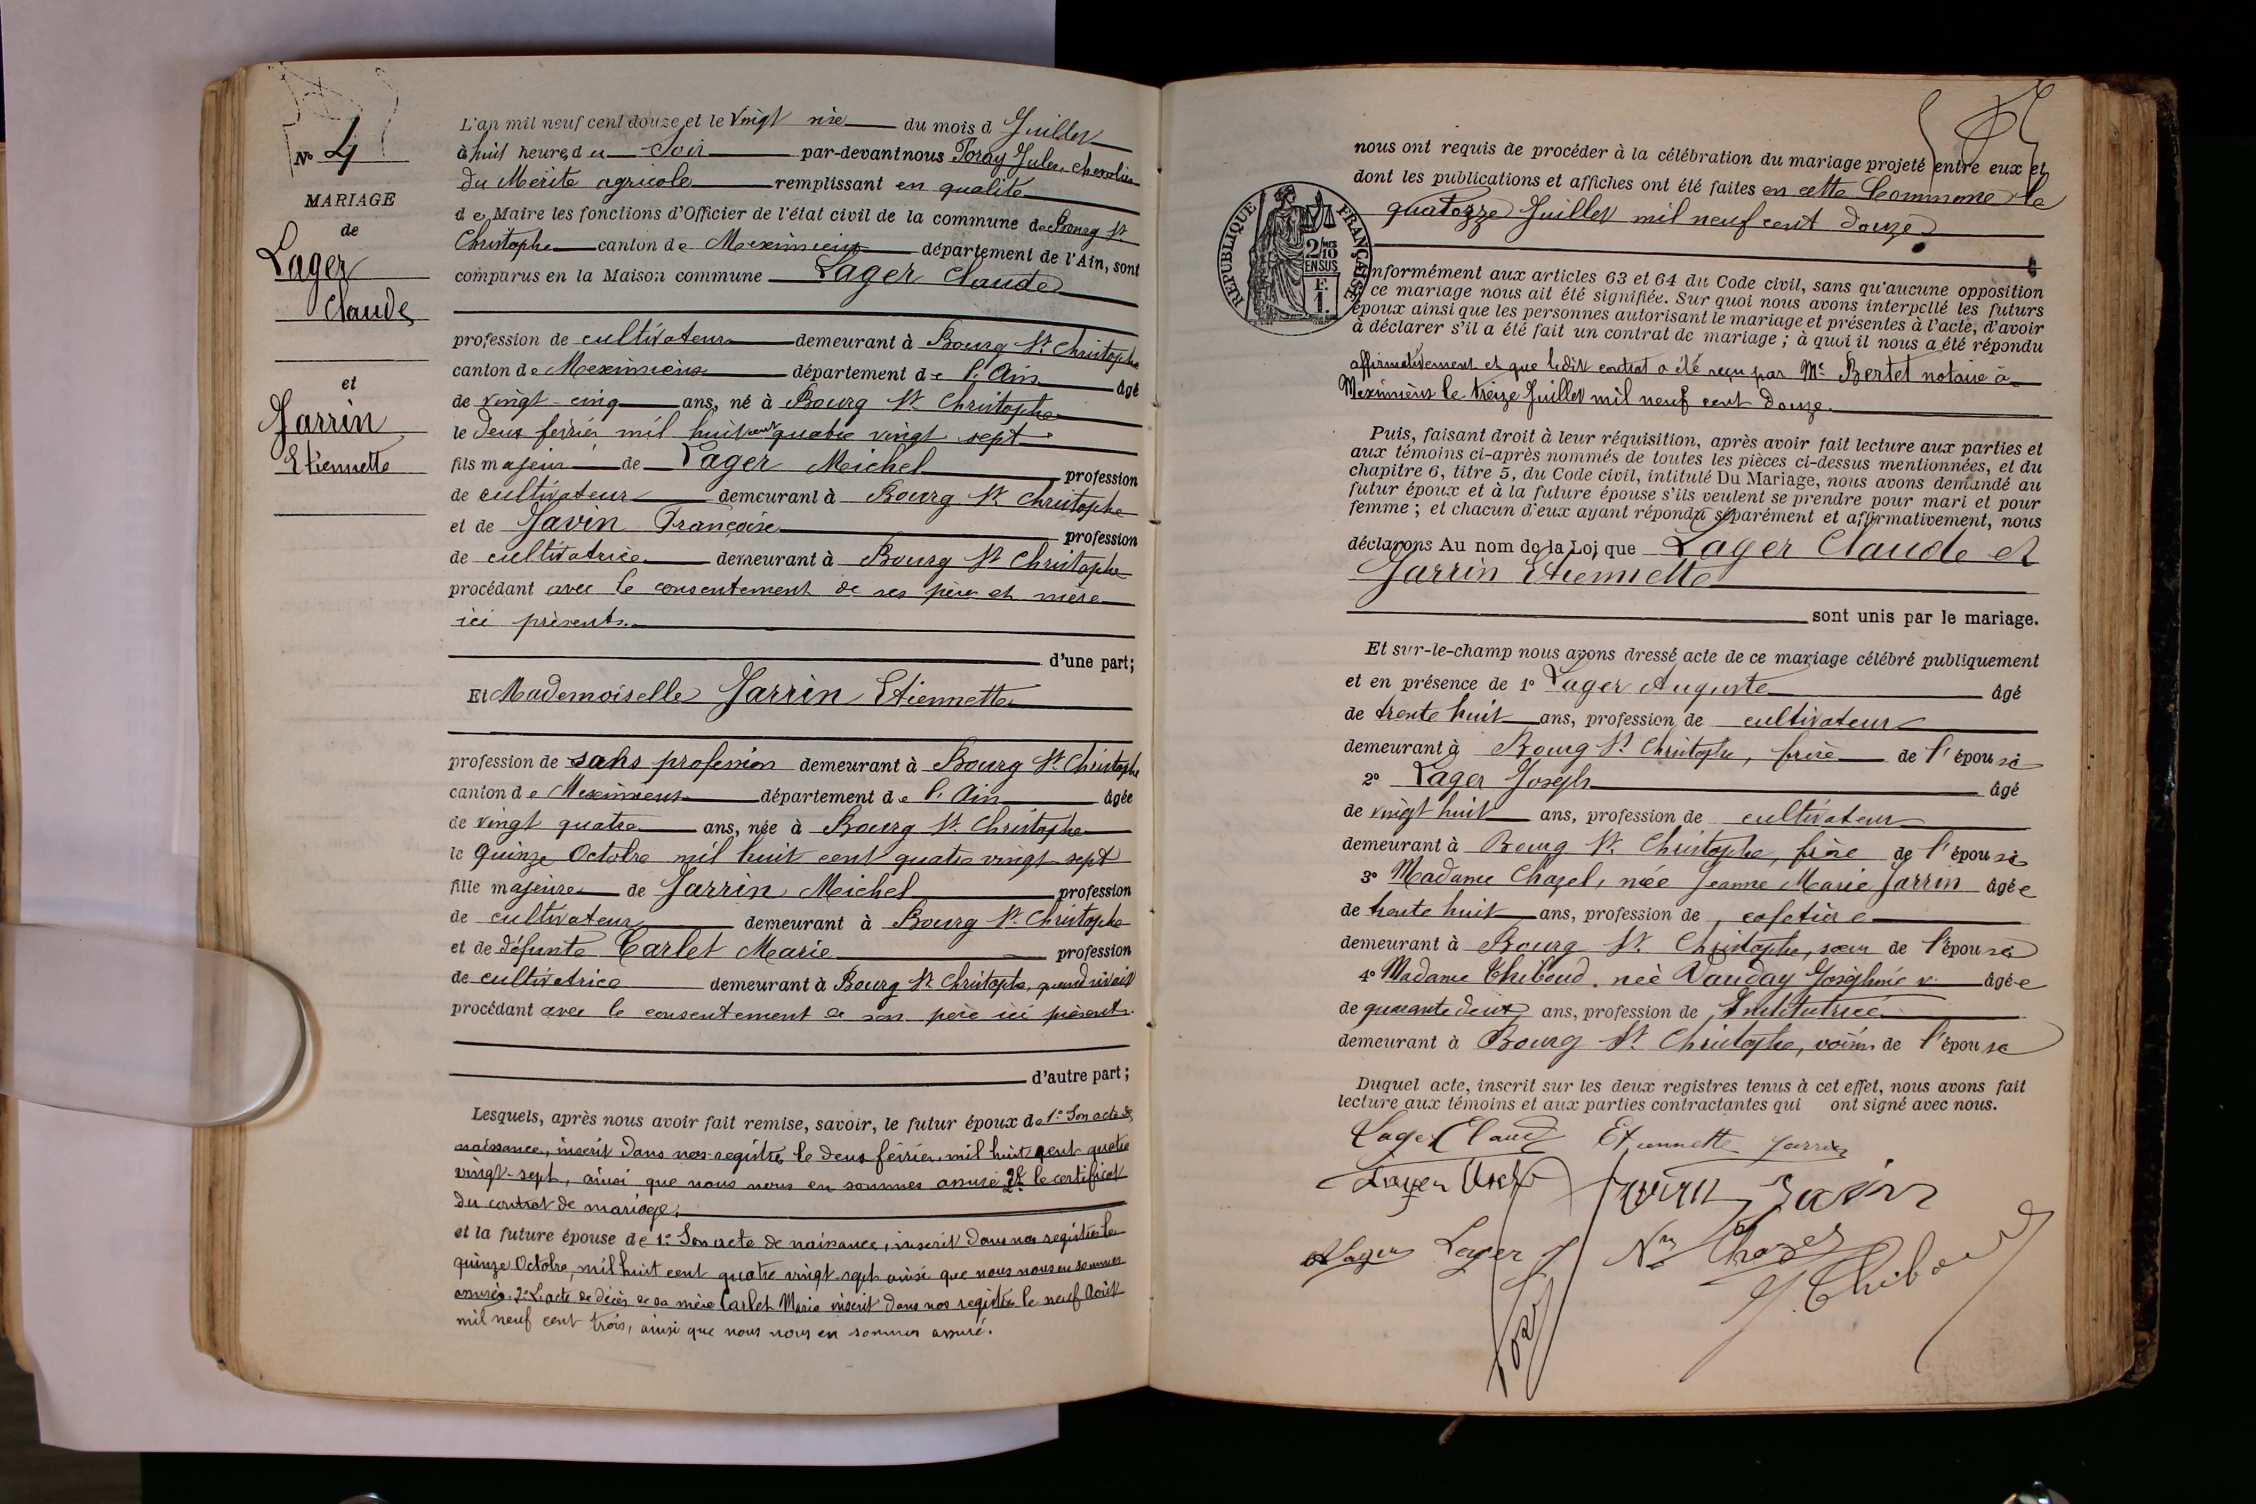 N° 4
MARIAGE
de
Lager
Claude
et
Jarrin
Etiennette
L'an mil neuf cent douze et le vingt six du mois d Juillet
à huit heures du Soir par-devant nous Toray Jules, Chevalier
du Mérite agricole remplissant en qualité
de Maire les fonctions d'Officier de l'état civil de la commune de Bourg St
Christophe canton de Meximieux département de l'Ain, sont
comparus en la Maison commune Lager Claude
profession de cultivateur demeurant à Bourg St Christophe
canton de Meximieux département de l'Ain âgé
de vingt cinq ans, né à Bourg St Christophe
le deux février mil huit cent quatre vingt sept
fils majeur de Lager Michel profession
de cultivateur demeurant à Bourg St Christophe
et de Javin Françoise profession
de cultivatrice demeurant à Bourg St Christophe
procédant avec le consentement de ses père et mère
ici présents.
d'une part;
Et Mademoiselle Jarrin Etiennette
profession de sans profession demeurant à Bourg St Christophe
canton de Meximieux département de l'Ain âgée
de vingt quatre ans, née à Bourg St Christophe
le quinze Octobre mil huit cent quatre vingt sept
fille majeure de Jarrin Michel profession
de cultivateur demeurant à Bourg St Christophe
et de défunte Carlet Marie profession
de cultivatrice demeurant à Bourg St Christophe, quand vivait
procédant avec le consentement de son père ici présent.
d'autre part;
Lesquels, après nous avoir fait remise, savoir, le futur époux de 1° Son acte de
naissance, inscrit dans nos registres le deux février mil huit cent quatre
vingt-sept, ainsi que nous nous en sommes assuré 2° le certificat
du contrat de mariage;
et la future épouse de 1° Son acte de naissance, inscrit dans nos registres le
quinze Octobre, mil huit cent quatre vingt sept ainsi que nous nous en sommes
assuré. 2° L'acte de décès de sa mère Carlet Marie inscrit dans nos registres le neuf Août
mil neuf cent trois, ainsi que nous nous en sommes assuré.
nous ont requis de procéder à la célébration du mariage projeté entre eux et
dont les publications et affiches ont été faites en cette Commune le
quatorze Juillet mil neuf cent douze
RÉPUBLIQUE FRANÇAISE
2/10
EN SUS
F.
1.
nformément aux articles 63 et 64 du Code civil, sans qu'aucune opposition
ce mariage nous ait été signifiée. Sur quoi nous avons interpellé les futurs
époux ainsi que les personnes autorisant le mariage et présentes à l'acte, d'avoir
à déclarer s'il a été fait un contrat de mariage; à quoi il nous a été répondu
affirmativement et que ledit contrat a été reçu par Me Bertet notaire à
Meximieux le treize Juillet mil neuf cent douze.
Puis, faisant droit à leur réquisition, après avoir fait lecture aux parties et
aux témoins ci-après nommés de toutes les pièces ci-dessus mentionnées, et du
chapitre 6, titre 5, du Code civil, intitulé Du Mariage, nous avons demandé au
futur époux et à la future épouse s'ils veulent se prendre pour mari et pour
femme; et chacun d'eux ayant répondu séparément et affirmativement, nous
déclarons Au nom de la Loi que Lager Claude et
Jarrin Etiennette
sont unis par le mariage.
Et sur-le-champ nous avons dressé acte de ce mariage célébré publiquement
et en présence de 1° Lager Auguste âgé
de trente huit ans, profession de cultivateur
demeurant à Bourg St Christophe, frère de l'épou
2° Lager Joseph âgé
de vingt huit ans, profession de cultivateur
demeurant à Bourg St Christophe, frère de l'épou
3° Madame Chazel, née Jeanne Marie Jarrin âgée
de trente huit ans, profession de cafetière
demeurant à Bourg St Christophe, sœur de l'épouse
4° Madame Thiboud née Vauday Joséphine âgée
de quarante deux ans, profession de Institutrice
demeurant à Bourg St Christophe, voisin de l'épouse
Duquel acte, inscrit sur les deux registres tenus à cet effet, nous avons fait
lecture aux témoins et aux parties contractantes qui ont signé avec nous.
Lager Claude Etiennette Jarrin
Lager Jarrin Javin
A Lager Lager J Chazel
J. Thiboud